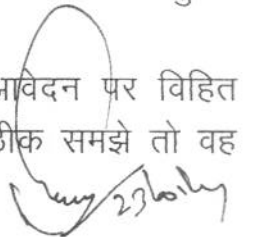 आवेदन पर विहित
ठीक समझे तो वह